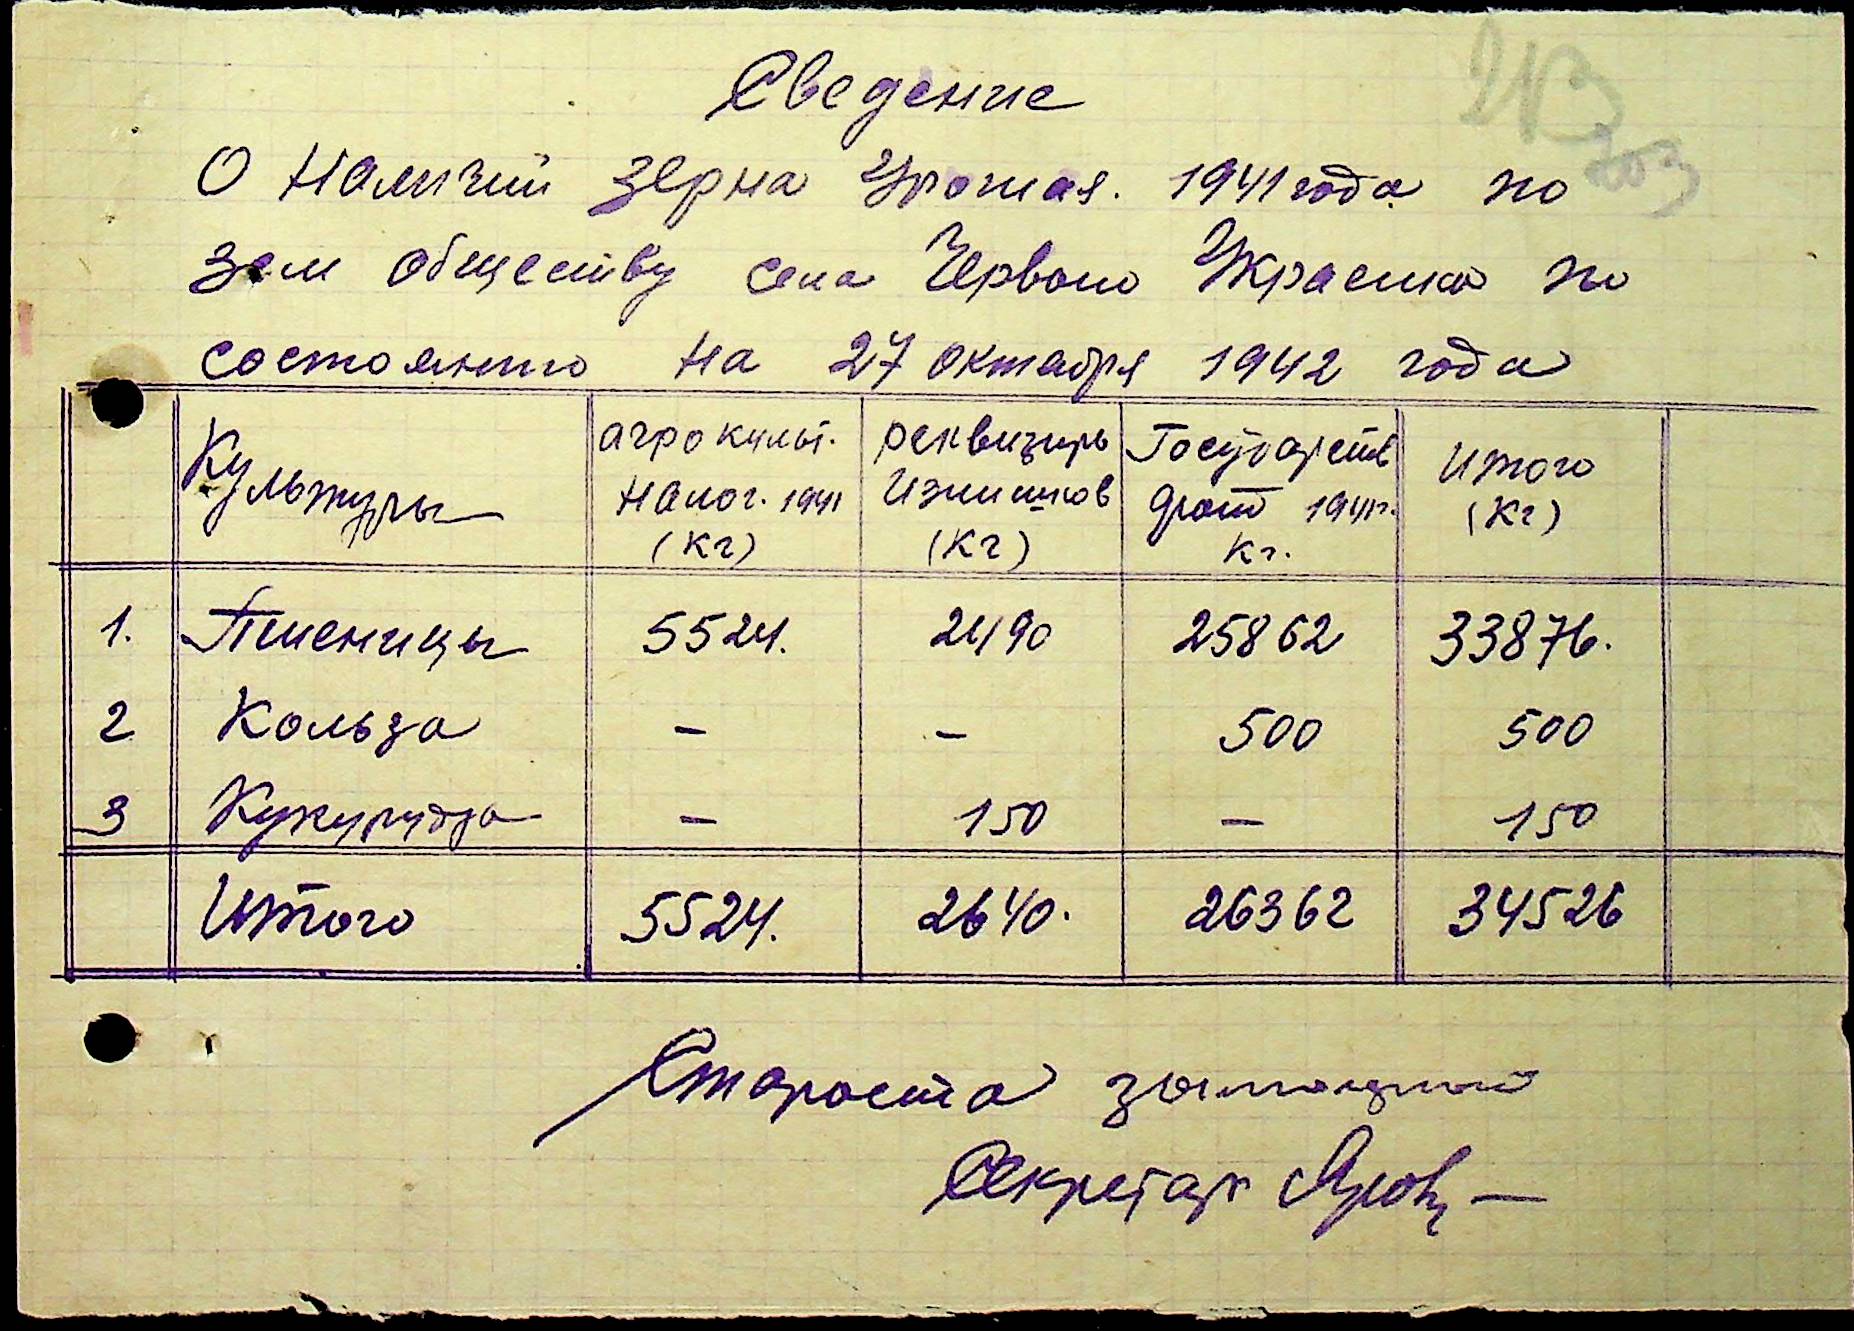 Сведение
О Наличии зерна Урожая. 1941 года по
Зем обществу села Червоно Украинка по
состоянию на 27 октября 1942 года
Культуры агрокульт. Налог. 1941 (Кг) реквизиръ Излишков (Кг) Государств фонт 1941г. Кг. Итого (Кг)
1. Пшеницы 5524. 2490 25862 33876.
2 Кольза – – 500 500
3 Кукурудза – 150 – 150
Итого 5524. 2640. 26362 34526
Староста
Секретар